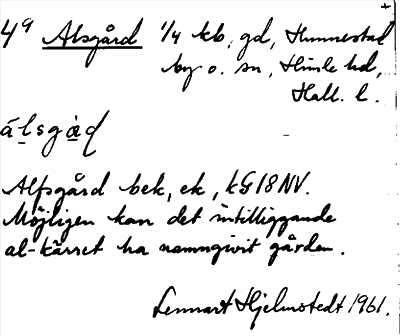 4ᵃ Alsgård 1/4 kb, gd, Hunnestad
by o. sn, Himle hd,
Hall. l.
álsgàd
Alfsgård bek, ek, kG18NV.
Möjligen kan det intilliggande
al-kärret ha namngivit gården.
Lennart Hjelmstedt 1961.